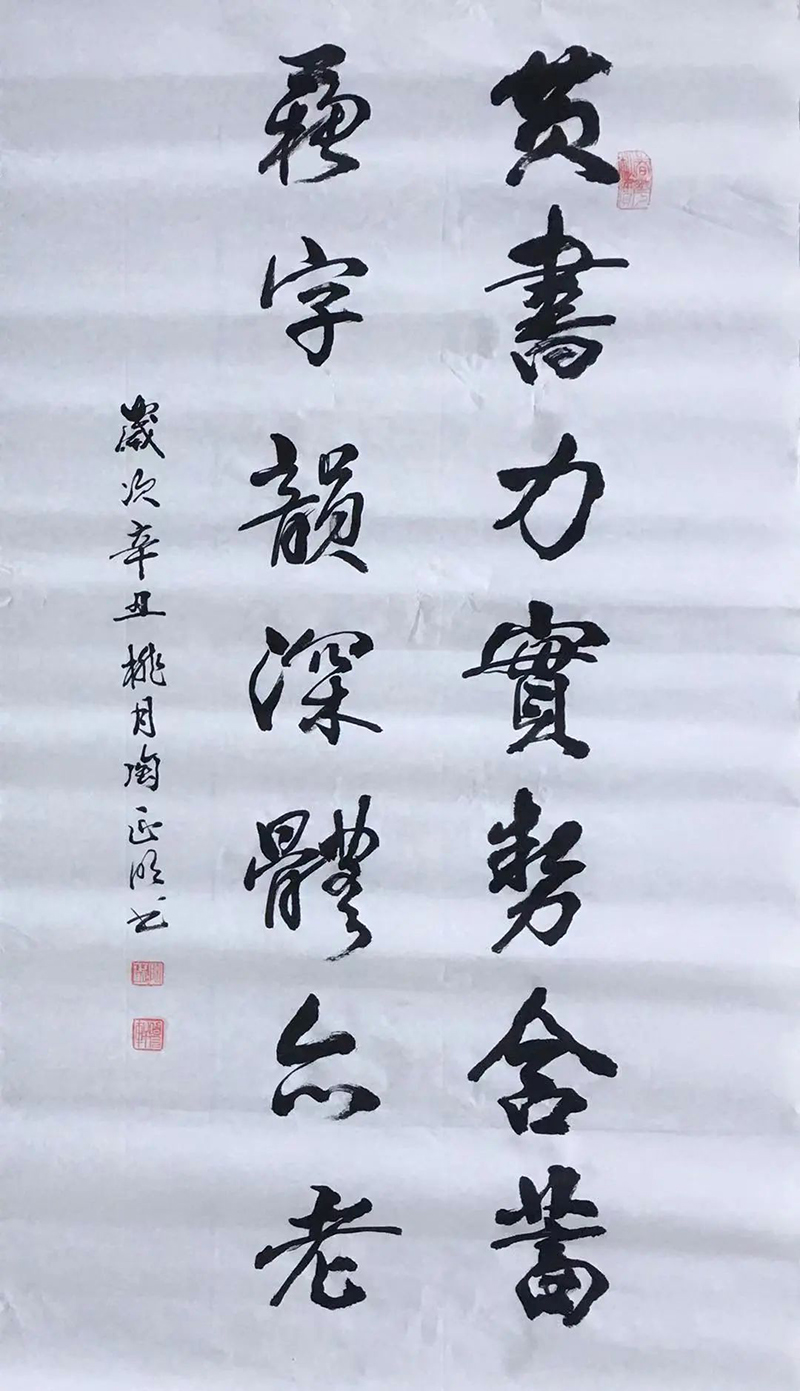 黄書力實勢含蓄
蘇字韻深體亦老
歲次辛丑桃月陶正明书